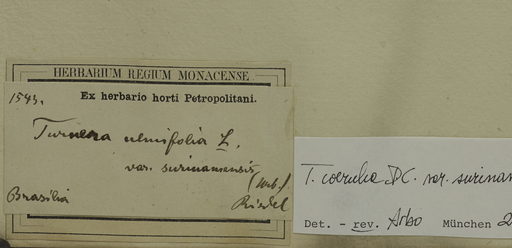 HERBARIUM REGIUM MONACENSE
1543. Ex herbario horti Petropolitani.
Turnera ulmifolia L.
var. surinamensis
(Urb.)
Brasilia Riedel
T. coerulea DC. var. surinam
Det. – rev. Arbo München 2